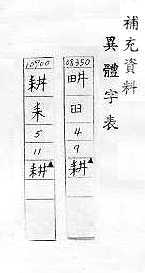 補充資料
異體字表
08350
畊
田
4
9
耕▲
10900
耕
耒
5
11
耕▲